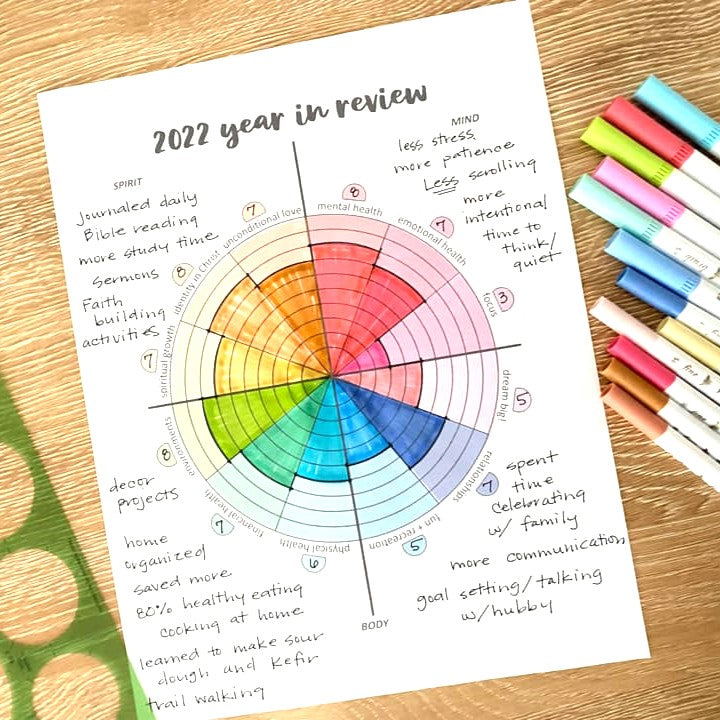 2022 year in review
SPIRIT
Journaled daily
Bible reading
more study time
Sermons
Faith
building
activities
MIND
less stress
more patience
Less scrolling
more
intentional
time to
think/
quiet
mental health
8
emotional health
7
focus
3
dream big!
5
relationships
7
fun + recreation
5
physical health
6
financial health
7
environments
8
spiritual growth
7
identity in Christ
8
unconditional love
7
decor
projects
home
organized
saved more
80% healthy eating
cooking at home
learned to make sour
dough and kefir
trail walking
BODY
spent
time
celebrating
w/ family
more communication
goal setting/talking
w/hubby